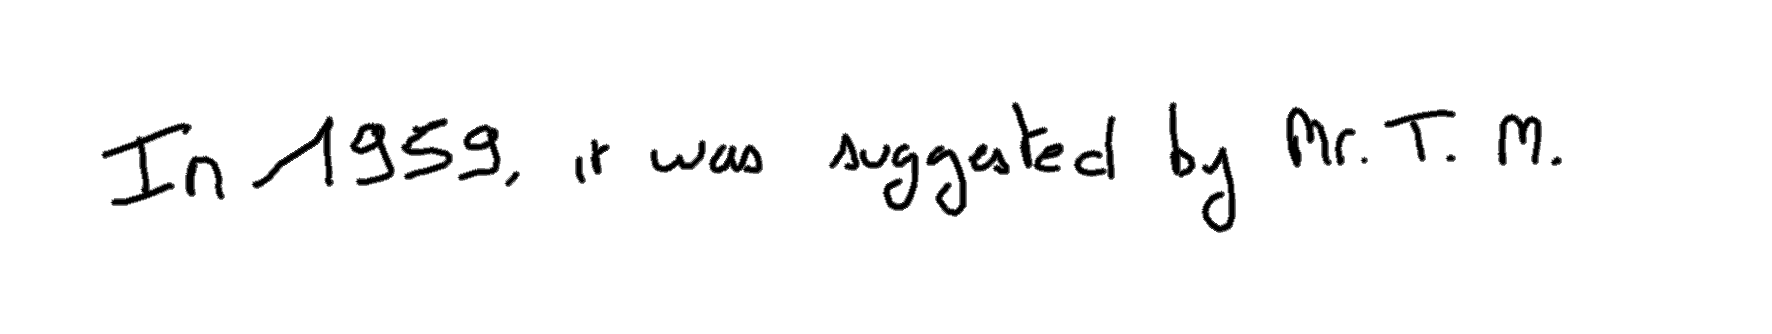 In 1959, it was suggested by Mr. T. M.